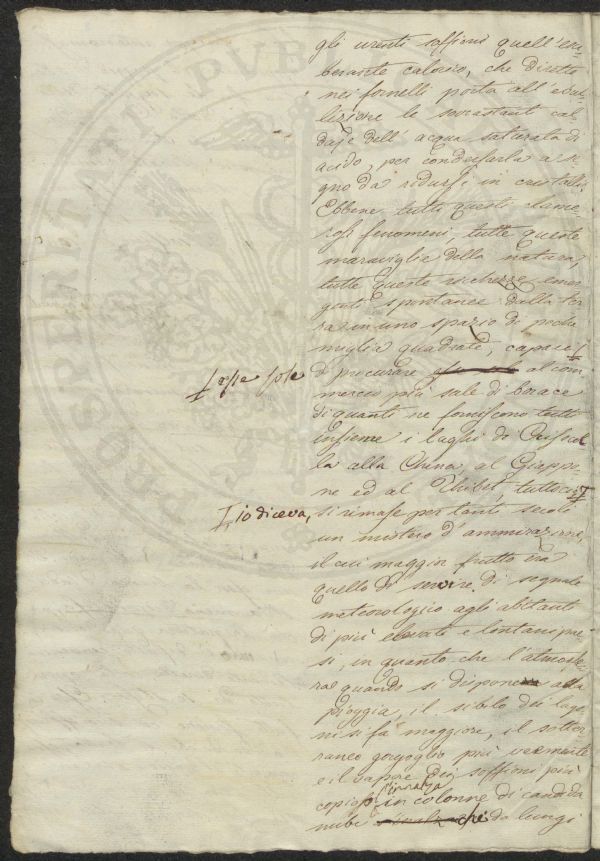 gli urenti soffioni quell'esu-
berante calorico, che diretto
nei fornelli porta all'ebul-
lizione le sovrastanti cal-
daje dell'acqua saturata di
acido, per condensarla a se-
gno da ridursi in cristalli.
Ebbene tutti questi clamo-
rosi fenomeni, tutte queste
maraviglie della natura,
tutte queste richezze emer-
genti spontanee dalla ter-
ra in uno spazio di poche
miglia quadrate, capaci
esse sole
di procurare al com-
mercio più sale di borace
di quanti ne forniscono tutti
insieme i laghi di
la alla China, al Giappo-
ne ed al Thibet, tuttociò
io diceva,
si rimase per tanti secoli
un mistero d'ammirazione,
il cui maggior frutto era
quello di servire di segnale
meteorologico agli abitanti
di più elevati e lontani pae-
si, in quanto che l'atmosfe-
ra quando si dispone alla
pioggia, il sibilo dei lago-
ni si fa maggiore, il sotter-
raneo gorgoglio più veemente
e il vapore dei soffioni più
copioso s'innalza in colonne di candida
nube che da lungi
PROSPERITATI PVB